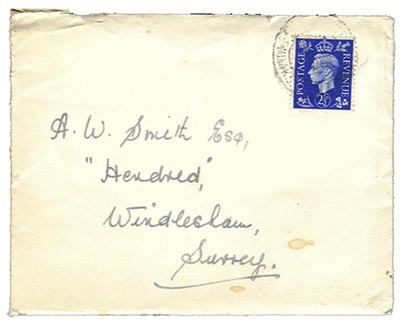 POSTAGE REVENUE
2½
A. W. Smith Esq,
"Hendred",
Windlesham,
Surrey.